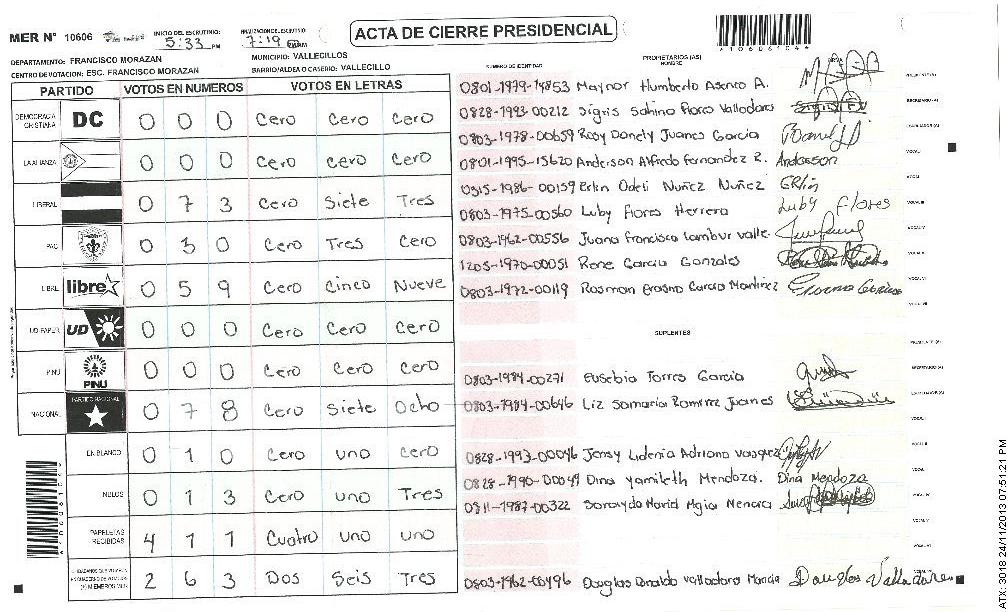 MER N° 10606
INICIO DEL ESCRUTINIO:
5:33 PM
FINALIZACION DEL ESCRUTINIO
7:19
ACTA DE CIERRE PRESIDENCIAL
DEPARTAMENTO: FRANCISCO MORAZAN
MUNICIPIO: VALLECILLOS
CENTRO DE VOTACION: ESC. FRANCISCO MORAZAN
BARRIO/ALDEA O CASERIO: VALLECILLO
PARTIDO VOTOS EN NUMEROS VOTOS EN LETRAS
DEMOCRACIA CRISTIANA DC 0 0 0 Cero Cero Cero
LA ALIANZA 0 0 0 Cero Cero Cero
LIBERAL 0 7 3 Cero Siete Tres
PAC 0 3 0 Cero Tres Cero
LIBRE libre 0 5 9 Cero Cinco Nueve
UD-FAPER UD 0 0 0 Cero Cero Cero
PINU PINU 0 0 0 Cero Cero Cero
NACIONAL PARTIDO NACIONAL 0 7 8 Cero Siete Ocho
EN BLANCO 0 1 0 Cero uno Cero
NULOS 0 1 3 Cero uno Tres
PAPELETAS RECIBIDAS 4 1 1 Cuatro uno uno
2 6 3 Dos Seis Tres
NUMERO DE IDENTIDAD
PROPIETARIOS (AS)
NOMBRE
0801-1979-14853 Maynor Humberto Asenco A.
0828-1993-00212 Sigris Sahino Flores Valladares
0803-1978-00659 Rosy Donely Juanes Garcia
0801-1995-15620 Anderson Alfredo Fernandez R. Anderson
0315-1986-00159 Erlin Odeli Nuñez Nuñez Erlin
0803-1975-00560 Luby Flores Herrera Luby Flores
0803-1962-00556 Juana Francisca Lambur Valle.
1205-1970-00051 Rene Garcia Gonzales
0803-1972-00119 Rosman Erasno Garcia Martinez
SUPLENTES
0803-1984-00271 Eusebio Torres Garcia
0803-1984-00646 Liz Samaria Ramirez Juanes
0828-1993-00046 Jensy Lidenia Adriano Vasquez
0828-1990-00049 Dina Yamileth Mendoza. Dina Mendoza
0811-1987-00322
0803-1962-00496 Douglas Donaldo Valladares Douglas Valladares
ATX: 3018 24/11/2013 07:51:21 PM